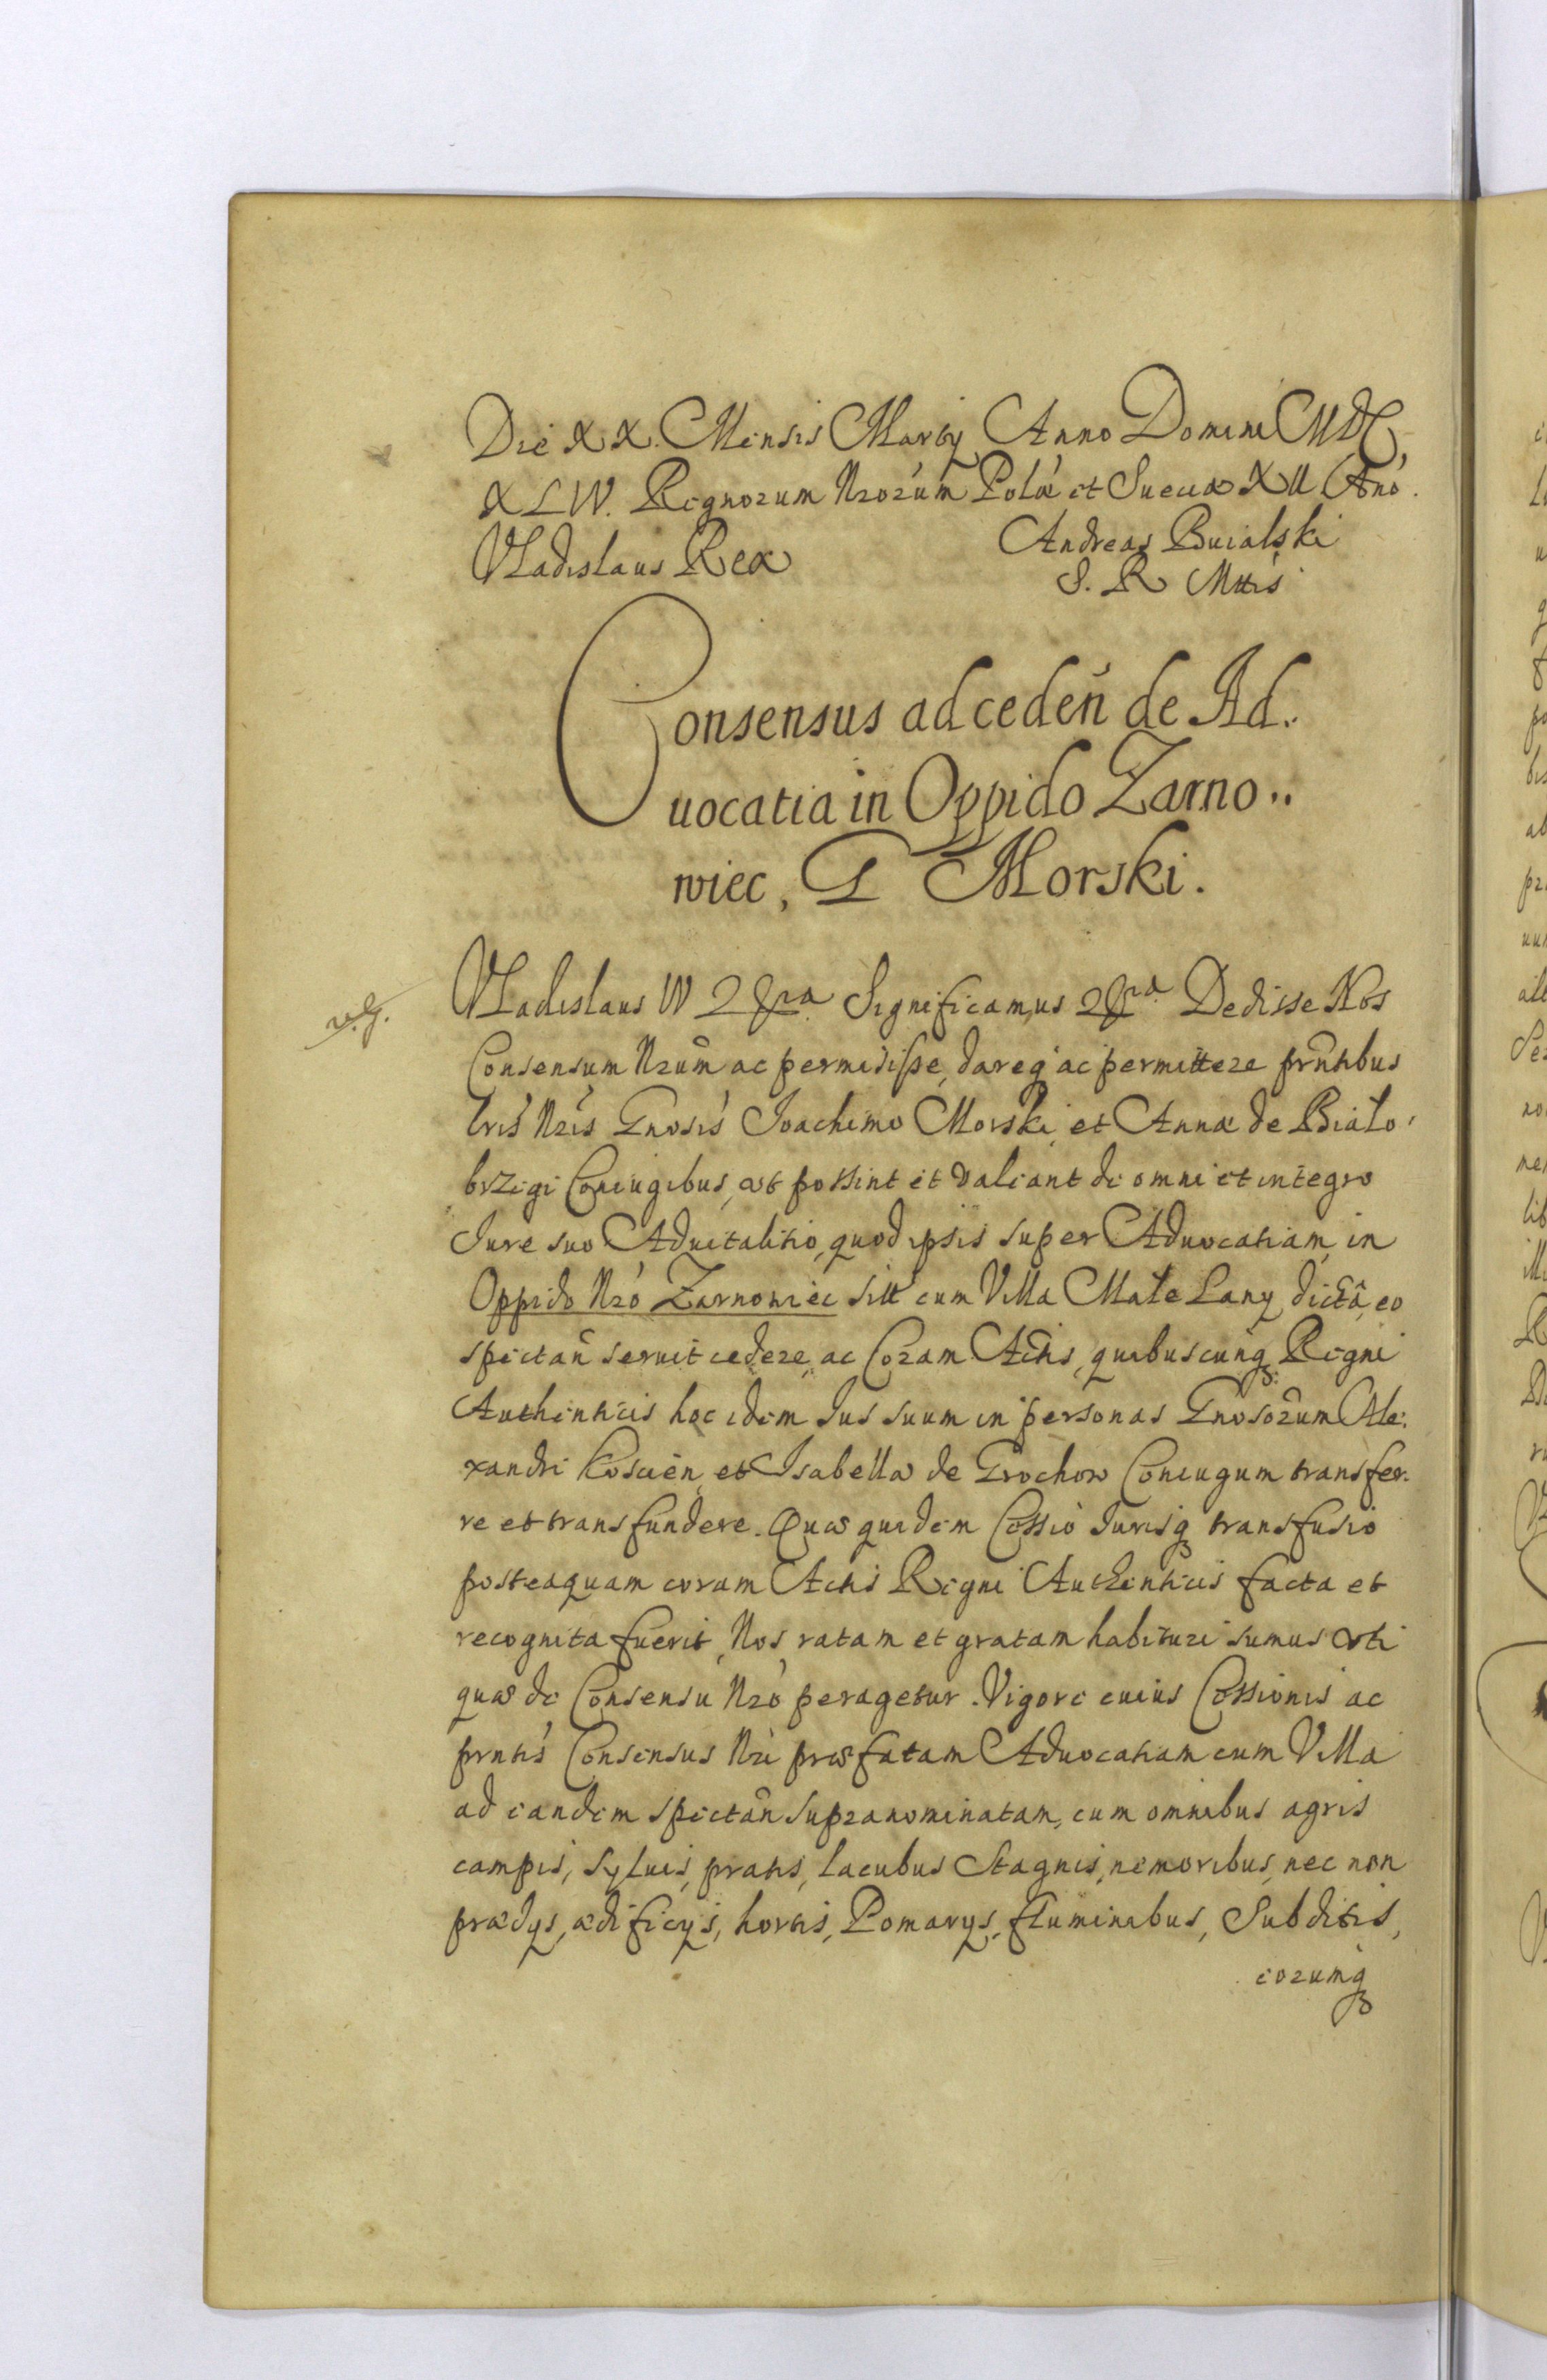 Die XX. Mensis Martij Anno Domini MDC,
XLIV. Regnorum Nrorum Polæ et Sueciæ XII Ano.
Vladislaus Rex
Andreas Buialski
S. R Mttis
Consensus ad ceden̄ de Ad..
uocatia in Oppido Zarno..
wiec, G Morski.
Vladislaus IV Significamus Dedisse Nos
Consensum Nrum ac permisisse, dareq ac permittere prntibus
lris Nris Gnosis Joachimo Morski et Annæ de Biało,
brzegi Coniugibus, vt possint et valeant de omni et integro
Iure suo Aduitalitio, quod ipsis super Aduocatiam, in
Oppido Nro Zarnowiec sitt cum Villa Małe Lany dictâ, eo
spectan̄ seruit cedere, ac Coram Actis, quibuscunq Regni
Authenticis hoc idem Ius suum in personas Gnosorum Ale:
xandri Koscien et Isabellæ de Grochow Coniugum transfer.
re et transfundere. Quæ quidem Cessio Iurisq transfusio
posteaquam coram Actis Regni Authenticis facta et
recognita fuerit, Nos ratam et gratam habituri sumus vti
quæ de Consensu Nro peragetur. Vigore cuius Cessionis ac
prntis Consensus Nri præfatam Aduocatiam cum Villa
ad eandem spectan̄ supranominatam, cum omnibus agris
campis, syluis, pratis, lacubus Stagnis, nemoribus, nec non
prædys, ædificys, hortis, Pomarys, fluminibus, Subditis,
eorumq